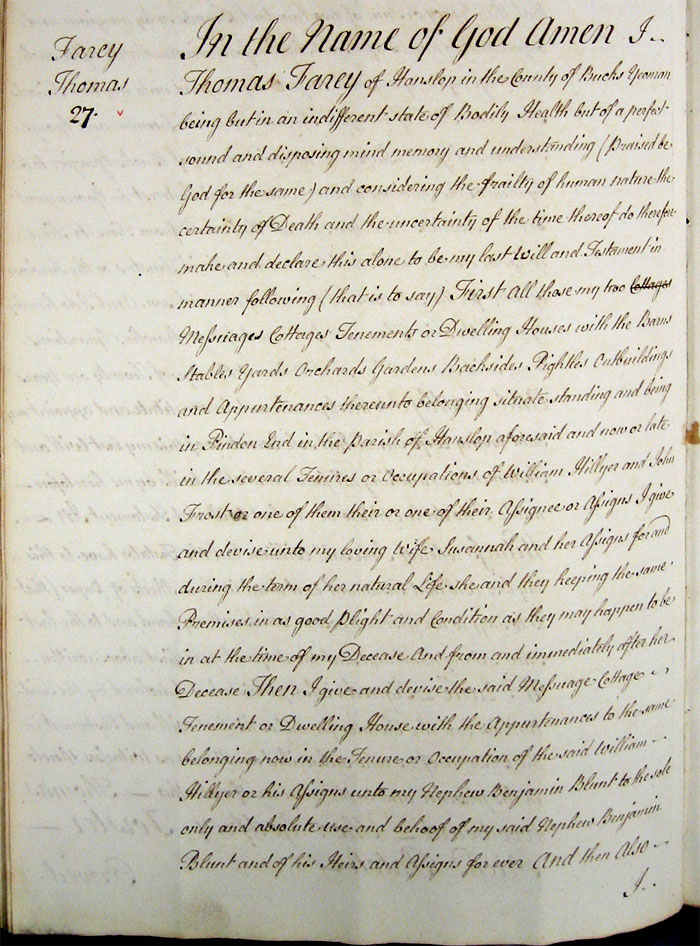 Farey
Thomas
27.
In the Name of God Amen I
Thomas Farey of Hanslop in the County of Bucks Yeoman
being but in an indifferent state of Bodily Health but of a perfect
sound and disposing mind memory and understanding (Praised be
God for the same) and considering the frailty of human nature the
certainty of Death and the uncertainty of the time thereof do therefore
make and declare this alone to be my last Will and Testament in
manner following (that is to say) First All those my two Cottages
Messuages Cottages Tenements or Dwelling Houses with the Barns
Stables Yards Orchards Gardens Backsides Pightles Outbuildings
and Appurtenances thereunto belonging situate standing and being
in Pindon End in the parish of Hanslop aforesaid and now or late
in the several Tenures or Occupations of William Hillyer and John
Frost or one of them their or one of their Assignee or Assigns I give
and devise unto my loving Wife Susannah and her Assigns for and
during the term of her natural Life she and they keeping the same
Premises in as good plight and Condition as they may happen to be
in at the time of my Decease And from and immediately after her
Decease Then I give and devise the said Messuage Cottage
Tenement or Dwelling House with the Appurtenances to the same
belonging now in the Tenure or Occupation of the said William
Hillyer or his Assigns unto my Nephew Benjamin Blunt to the sole
only and absolute use and behoof of my said Nephew Benjamin
Blunt and of his Heirs and Assigns for ever And then Also
I